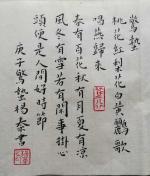 驚蟄
桃花紅梨花白黃鸝歌
唱燕歸來
春有百花秋有月夏有涼
風冬有雪若有閒事掛心
頭便是人間好時節
庚子驚蟄楊秦書